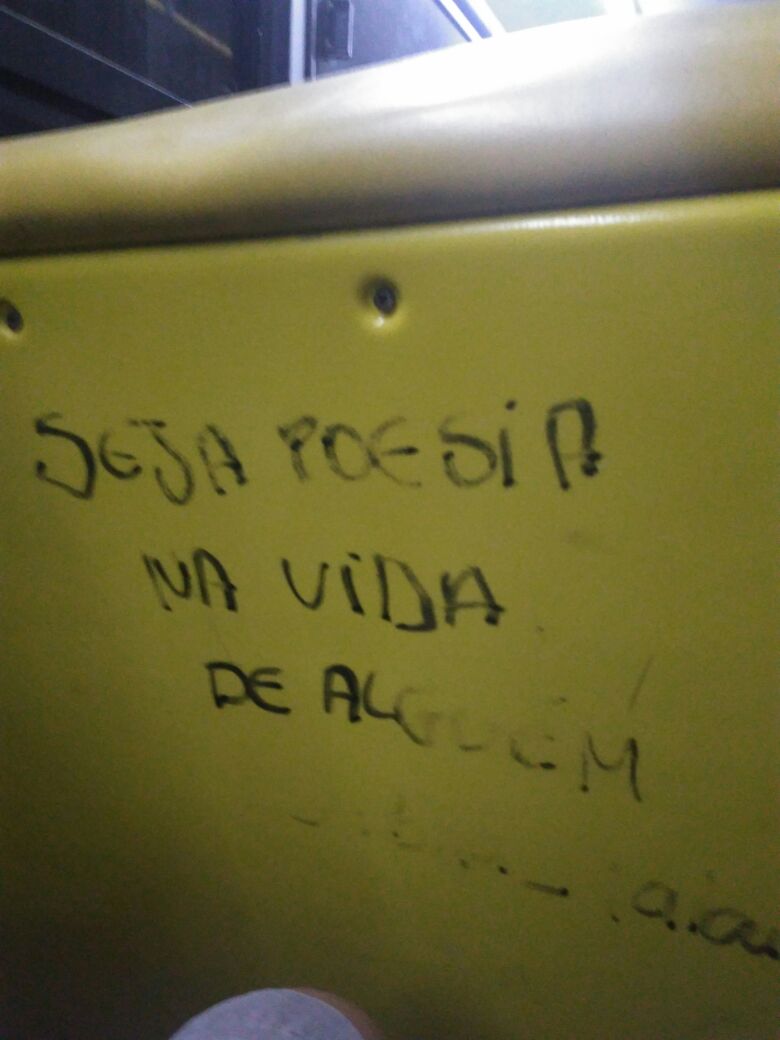 SEJA POESiA
NA ViDA
DE ALGUÉM